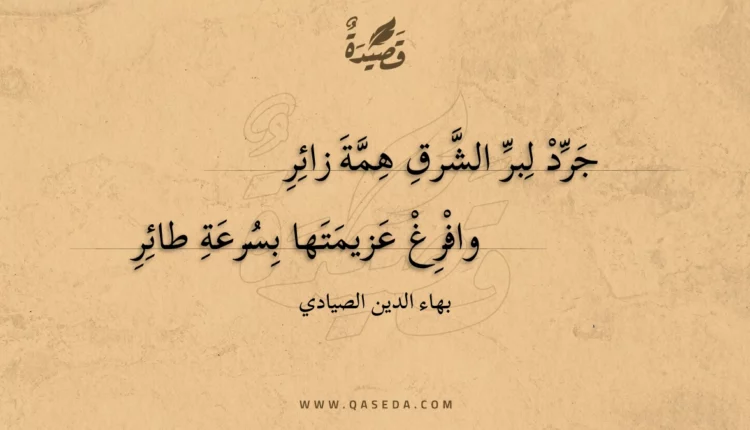 قَصِيْدَةٌ
جَرِّدْ لِبرِّ الشَّرقِ هِمَّةَ زائِرِ
وافْرِغْ عَزيمَتَها بِسُرعَةِ طائِرِ
بهاء الدين الصيادي
WWW.QASEDA.COM